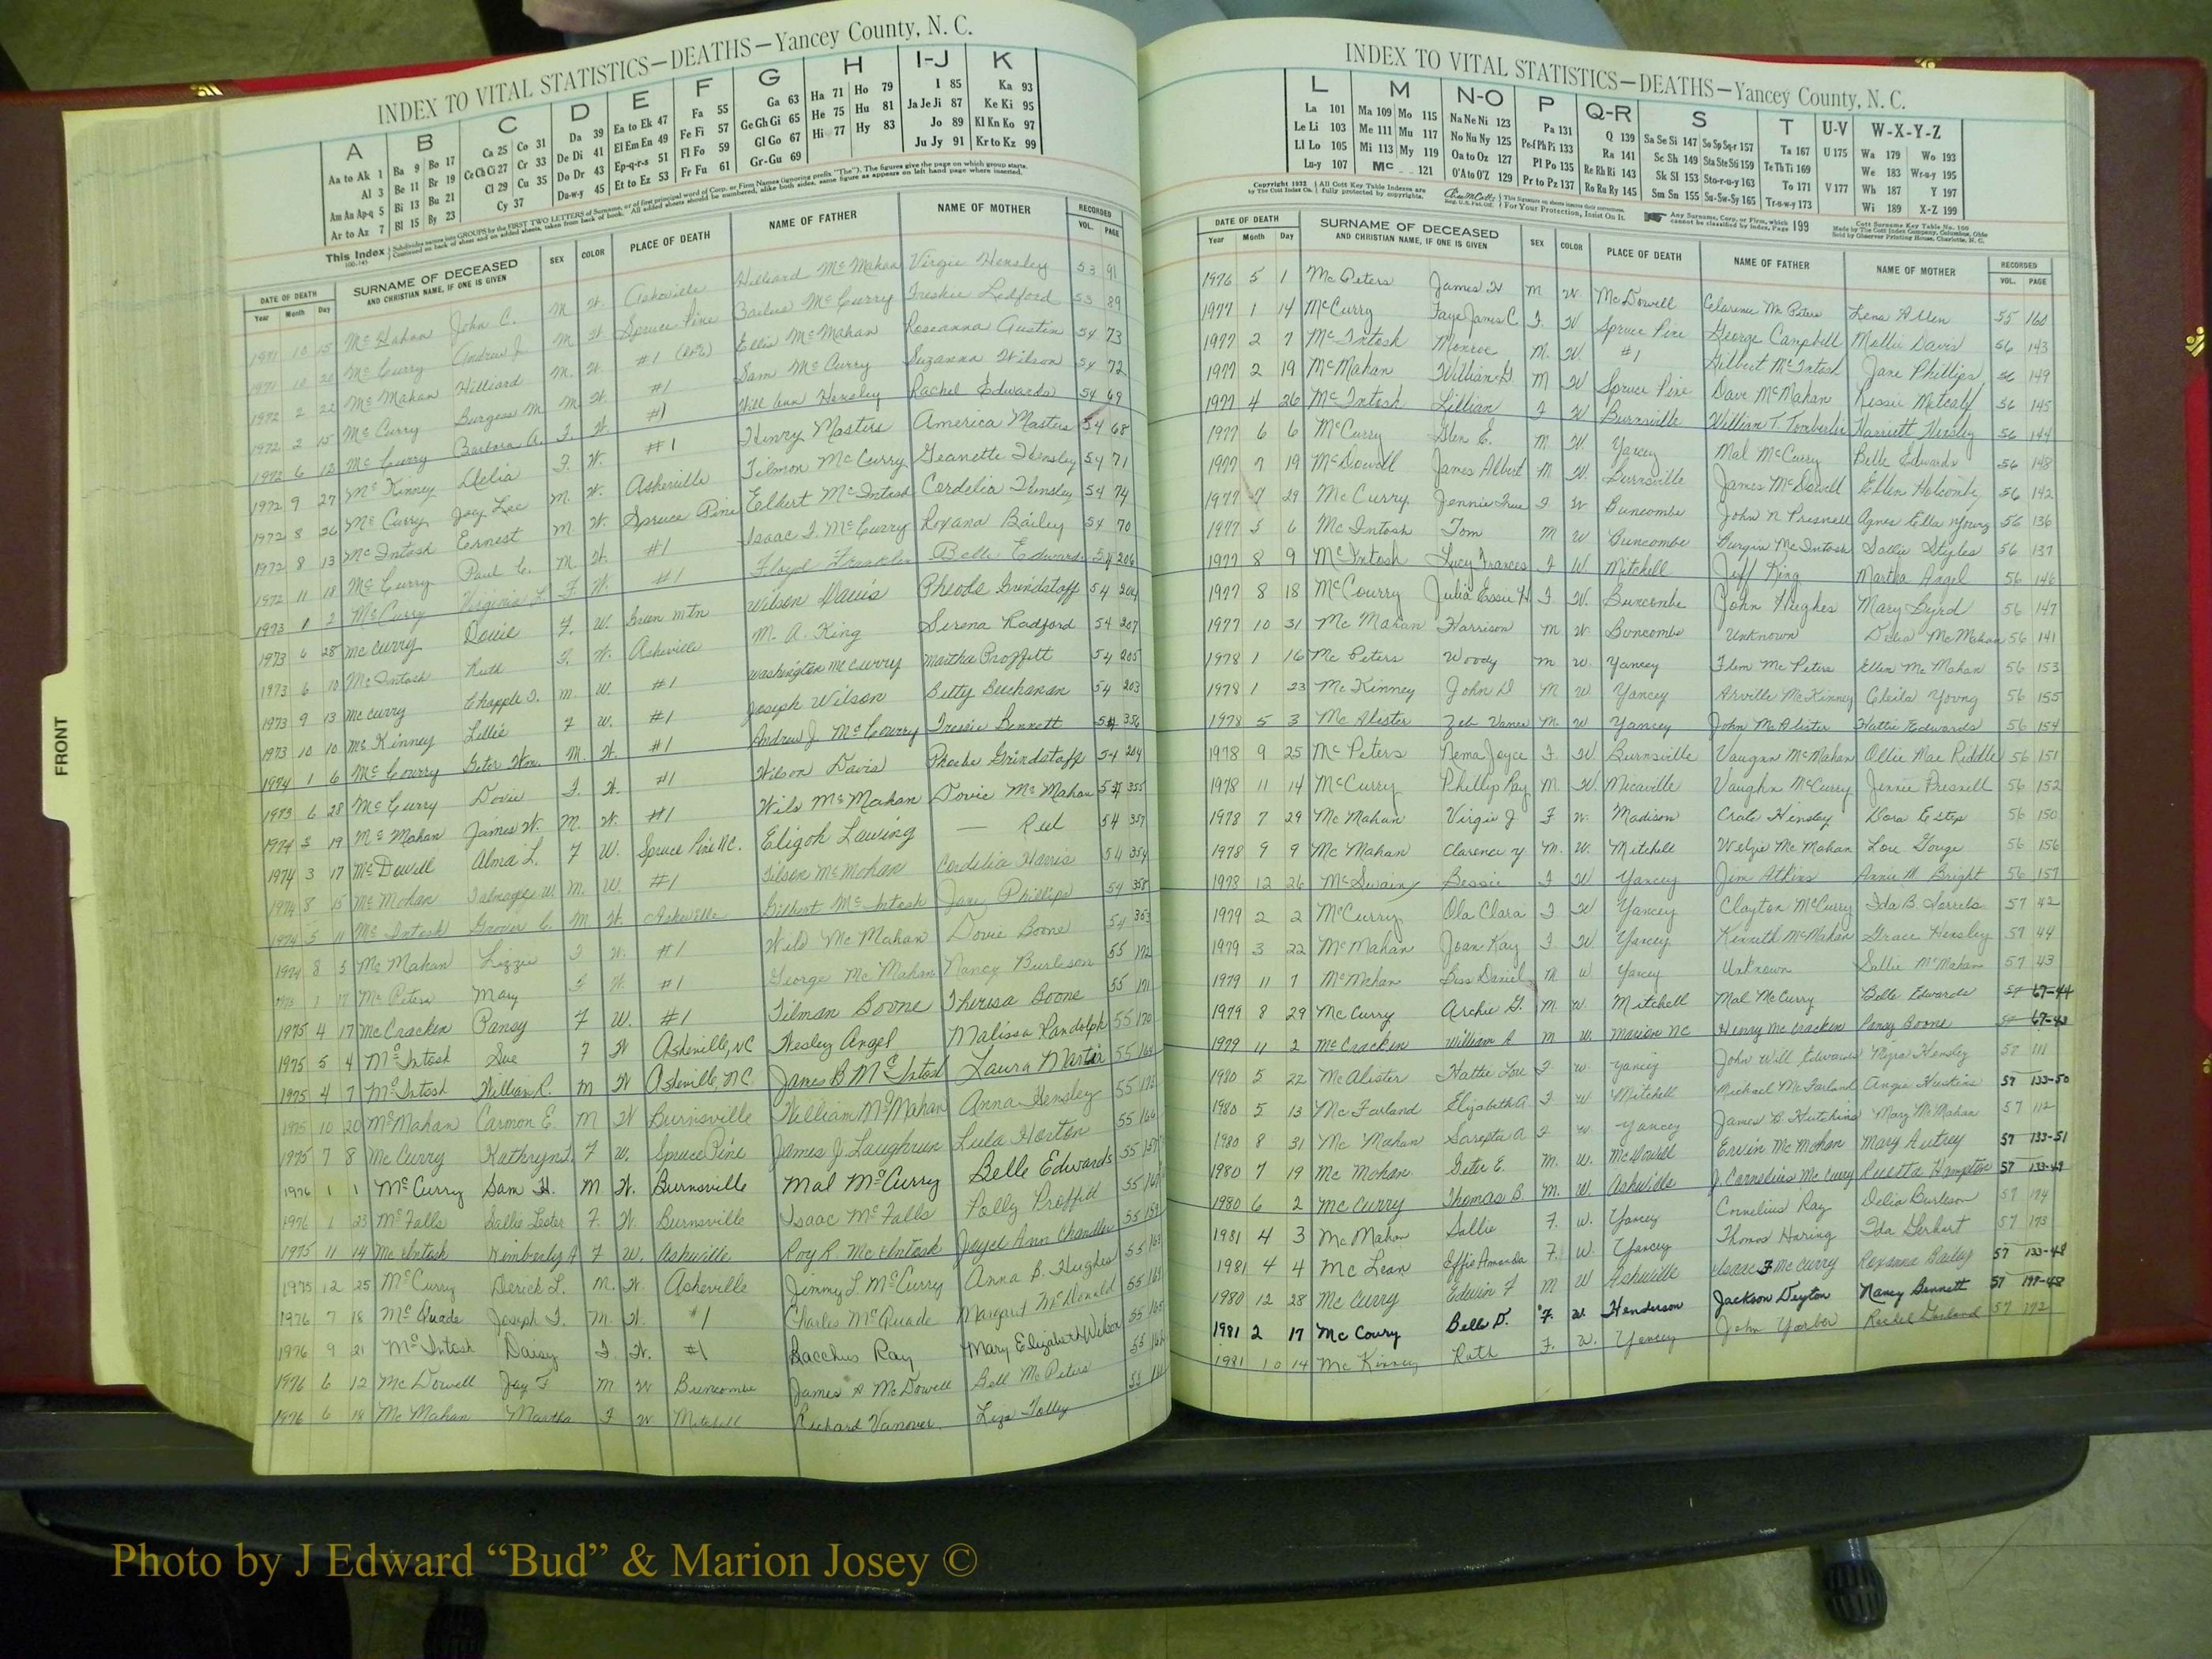 INDEX TO VITAL STATISTICS—DEATHS—Yancey County, N. C.
A B C D E F G H I-J K
Aa to Ak 1 Ba 9 Bo 17 Ca 25 Co 31 Da 39 Ea to Ek 47 Fa 55 Ga 63 Ha 71 Ho 79 I 85 Ka 93
Al 3 Be 11 Br 19 Ce Ch Ci 27 Cr 33 De Di 41 El Em En 49 Fe Fi 57 Ge Gh Gi 65 He 75 Hu 81 Ja Je Ji 87 Ke Ki 95
Am An Ap-q 5 Bi 13 Bu 21 Cl 29 Cu 35 Do Dr 43 Ep-q-r-s 51 Fl Fo 59 Gl Go 67 Hi 77 Hy 83 Jo 89 Kl Kn Ko 97
Ar to Az 7 Bl 15 By 23 Cy 37 Du-w-y 45 Et to Ez 53 Fr Fu 61 Gr-Gu 69 Ju Jy 91 Kr to Kz 99
This Index
DATE OF DEATH SURNAME OF DECEASED SEX COLOR PLACE OF DEATH NAME OF FATHER NAME OF MOTHER RECORDED
Year Month Day AND CHRISTIAN NAME, IF ONE IS GIVEN VOL. PAGE
1971 10 15 McMahan John C. M W. Asheville Hilliard McMahan Virgie Hensley 53 91
1971 10 20 McCurry Andrew J. M W. Spruce Pine Bailus McCurry Freskie Ledford 53 89
1972 2 22 McMahan Hilliard M. W. #1 Ellis McMahan Roseanna Austin 54 73
1972 2 15 McCurry Burgess M. M. W. #1 Sam McCurry Suzanna Wilson 54 72
1972 6 12 McCurry Barbara A. F. W. #1 Will Hensley Rachel Edwards 54 69
1972 9 27 McKinney Delia F. W. #1 Henry Masters America Masters 54 68
1972 8 26 McCurry Joey Lee M. W. Asheville Tilmon McCurry Geanette Hensley 54 71
1972 8 13 McIntosh Ernest M. W. Spruce Pine Elbert McIntosh Cordelia Hensley 54 74
1972 11 18 McCurry Paul C. M. W. #1 Isaac F. McCurry Roxana Bailey 54 70
1973 1 2 McCurry Virginia L. F W. #1 Floyd Franklin Belle Edwards 54 206
1973 6 28 McCurry Dovie F. W. Green Mtn Wilson Davis Pheoda Grindstaff 54 204
1973 6 10 McIntosh Ruth F. W. Asheville M. A. King Serena Radford 54 207
1973 9 13 McCurry Chapple J. M. W. #1 Washington McCurry Martha Proffitt 54 205
1973 10 10 McKinney Lillie F W. #1 Joseph Wilson Betty Buchanan 54 203
1974 1 6 McCourry Peter Wm. M. W. #1 Andrew J. McCourry Tressie Bennett 54 356
1973 6 28 McCurry Dovie F. W. #1 Wilson Davis Phoebe Grindstaff 54 204
1974 3 19 McMahan James W. M. W. #1 Wils McMahan Dovie McMahan 54 355
1974 3 17 McDowell Alma L. F W. Spruce Pine NC. Eligoh Lawing — Peel 54 357
1974 8 15 McMahan Talmage W. M. W. #1 Tilson McMahan Cordelia Harris 54 354
1974 5 11 McIntosh Grover C. M W. Asheville Gilbert McIntosh Jane Phillips 54 358
1974 8 5 McMahan Lizzie F W. #1 Wild McMahan Dovie Boone 54 353
1 17 McPeters Mary F W. #1 George McMahan Nancy Burleson 55 172
1975 4 17 McCracken Pansy F W. #1 Tilman Boone Theresa Boone 55 171
1975 5 4 McIntosh Sue F W Asheville, NC Wesley Angel Malissa Randolph 55 170
1975 4 7 McIntosh William R. M W Asheville, N.C. James B McIntosh Laura Martin 55
1975 10 20 McMahan Carmon E. M W Burnsville William McMahan Anna Hensley 55
1975 7 8 McCurry Kathryn L F W. Spruce Pine James J. Laughrun Lula Horton 55
1976 1 1 McCurry Sam H. M W. Burnsville Mal McCurry Belle Edwards 55
1976 1 23 McFalls Sallie Lester F. W. Burnsville Isaac McFalls Polly Proffitt 55
1975 11 14 McIntosh Kimberly A F W. Asheville Roy R McIntosh Joyce Ann Chandler 55
1975 12 25 McCurry Derick L. M. W. Asheville Jimmy L McCurry Anna B. Hughes 55
1976 7 18 McQuade Joseph F. M. W. #1 Charles McQuade Margaret McDonald 55
1976 9 21 McIntosh Daisy F. W. #1 Bacchus Ray Mary Elizabeth Wilson 55
1976 6 12 McDowell Jay F M W Buncombe James A McDowell Bell McPeters 55
1976 6 18 McMahan Martha F W Mitchell Richard Vanover Liza Tolley 55
FRONT
INDEX TO VITAL STATISTICS—DEATHS—Yancey County, N. C.
L M N-O P Q-R S T U-V W-X-Y-Z
La 101 Ma 109 Mo 115 Na Ne Ni 123 Pa 131 Q 139 Sa Se Si 147 So Sp Sq-r 157 Ta 167 U 175 Wa 179 Wo 193
Le Li 103 Me 111 Mu 117 No Nu Ny 125 Pe-f Ph Pi 133 Ra 141 Sc Sh 149 Sta Ste Sti 159 Te Th Ti 169 V 177 We 183 Wr-u-y 195
Ll Lo 105 Mi 113 My 119 Oa to Oz 127 Pl Po 135 Re Rh Ri 143 Sk Sl 153 Sto-r-u-y 163 To 171 Wh 187 Y 197
Lu-y 107 Mc 121 O'A to O'Z 129 Pr to Pz 137 Ro Ru Ry 145 Sm Sn 155 Su-Sw-Sy 165 Tr-u-w-y 173 Wi 189 X-Z 199
DATE OF DEATH SURNAME OF DECEASED SEX COLOR PLACE OF DEATH NAME OF FATHER NAME OF MOTHER RECORDED
Year Month Day AND CHRISTIAN NAME, IF ONE IS GIVEN VOL. PAGE
1976 5 1 McPeters James H M W. McDowell Clarence McPeters Lena Allen 55 160
1977 1 14 McCurry Faye James C F. W Spruce Pine George Campbell Mollie Davis 56 143
1977 2 7 McIntosh Monroe M. W. #1 Gilbert McIntosh Jane Phillips 56 149
1977 2 19 McMahan William G M W Spruce Pine Dave McMahan Kissie Metcalf 56 145
1977 4 26 McIntosh Lillian F W Burnsville William T. Tomberlin Harriett Hensley 56 144
1977 6 6 McCurry Glen E. M. W. Yancey Mal McCurry Belle Edwards 56 148
1977 7 19 McDowell James Albert M W. Burnsville James McDowell Ellen Holcombe 56 142
1977 7 29 McCurry Jennie True F W Buncombe John N Presnell Agnes Ella Young 56 136
1977 5 6 McIntosh Tom M W Buncombe Burgin McIntosh Sallie Styles 56 137
1977 8 9 McIntosh Lucy Frances F W. Mitchell Jeff King Martha Angel 56 146
1977 8 18 McCourry Julia Essie H F. W. Buncombe John Hughes Mary Byrd 56 147
1977 10 31 McMahan Harrison M W Buncombe Unknown Delia McMahan 56 141
1978 1 16 McPeters Woody M W. Yancey Flem McPeters Ellen McMahan 56 153
1978 1 23 McKinney John D M W Yancey Arville McKinney Young 56 155
1978 5 3 McAlister Zeb Vance M. W Yancey John McAlister Hattie Edwards 56 154
1978 9 25 McPeters Nema Joyce F W Burnsville Vaugan McMahan Ollie Mae Riddle 56 151
1978 11 14 McCurry Phillip Ray M. W. Micaville Vaughn McCurry Jennie Presnell 56 152
1978 7 29 McMahan Virgie J F W. Madison Crate Hensley Dora Estep 56 150
1978 9 9 McMahan Clarence Y M. W. Mitchell Welzie McMahan Lou Gouge 56 156
1978 12 26 McSwain Bessie F W Yancey Jim Atkins Annie M Bright 56 157
1979 2 2 McCurry Ola Clara F W Yancey Clayton McCurry Ida B Sorrels 57 42
1979 3 22 McMahan Joan Kay F. W Yancey Kenneth McMahan Grace Hensley 57 44
1979 11 7 McMahan Bess Daniel M W Yancey Unknown Sallie McMahan 57 43
1979 8 29 McCurry Archie G. M. W. Mitchell Mal McCurry Belle Edwards 57 67-44
1979 11 2 McCracken William A M W. Marion NC Henry McCracken Pansy Boone 57 67-43
1980 5 22 McAlister Hattie Lou F W. Yancey John Will Edwards Myra Hensley 57 111
1980 5 13 McFarland Elizabeth A. F W Mitchell Michael McFarland Angie Huskins 57 133-50
1980 8 31 McMahan Sarepta A F W. Yancey James B Hutchins Mary McMahan 57 112
1980 7 19 McMahan Getie E. M. W. McDowell Ervin McMahan Mary Autrey 57 133-51
1980 6 2 McCurry Thomas B. M. W. Asheville J. Cornelius McCurry Ruletta Hampton 57 133-49
1981 4 3 McMahan Sallie F. W. Yancey Cornelius Ray Delia Burleson 57 174
1981 4 4 McLean Effie Amanda F. W. Yancey Thomas Haring Ida Gerhart 57 173
1980 12 28 McCurry Edwin F M W Asheville Isaac F McCurry Roxanna Bailey 57 133-48
1981 2 17 McCoury Belle D. F. W. Henderson Jackson Deyton Nancy Bennett 57 197-48
1981 10 14 McKinney Ruth F. W. Yancey John Yarber Rachel Garland 57 172
Photo by J Edward “Bud” & Marion Josey ©